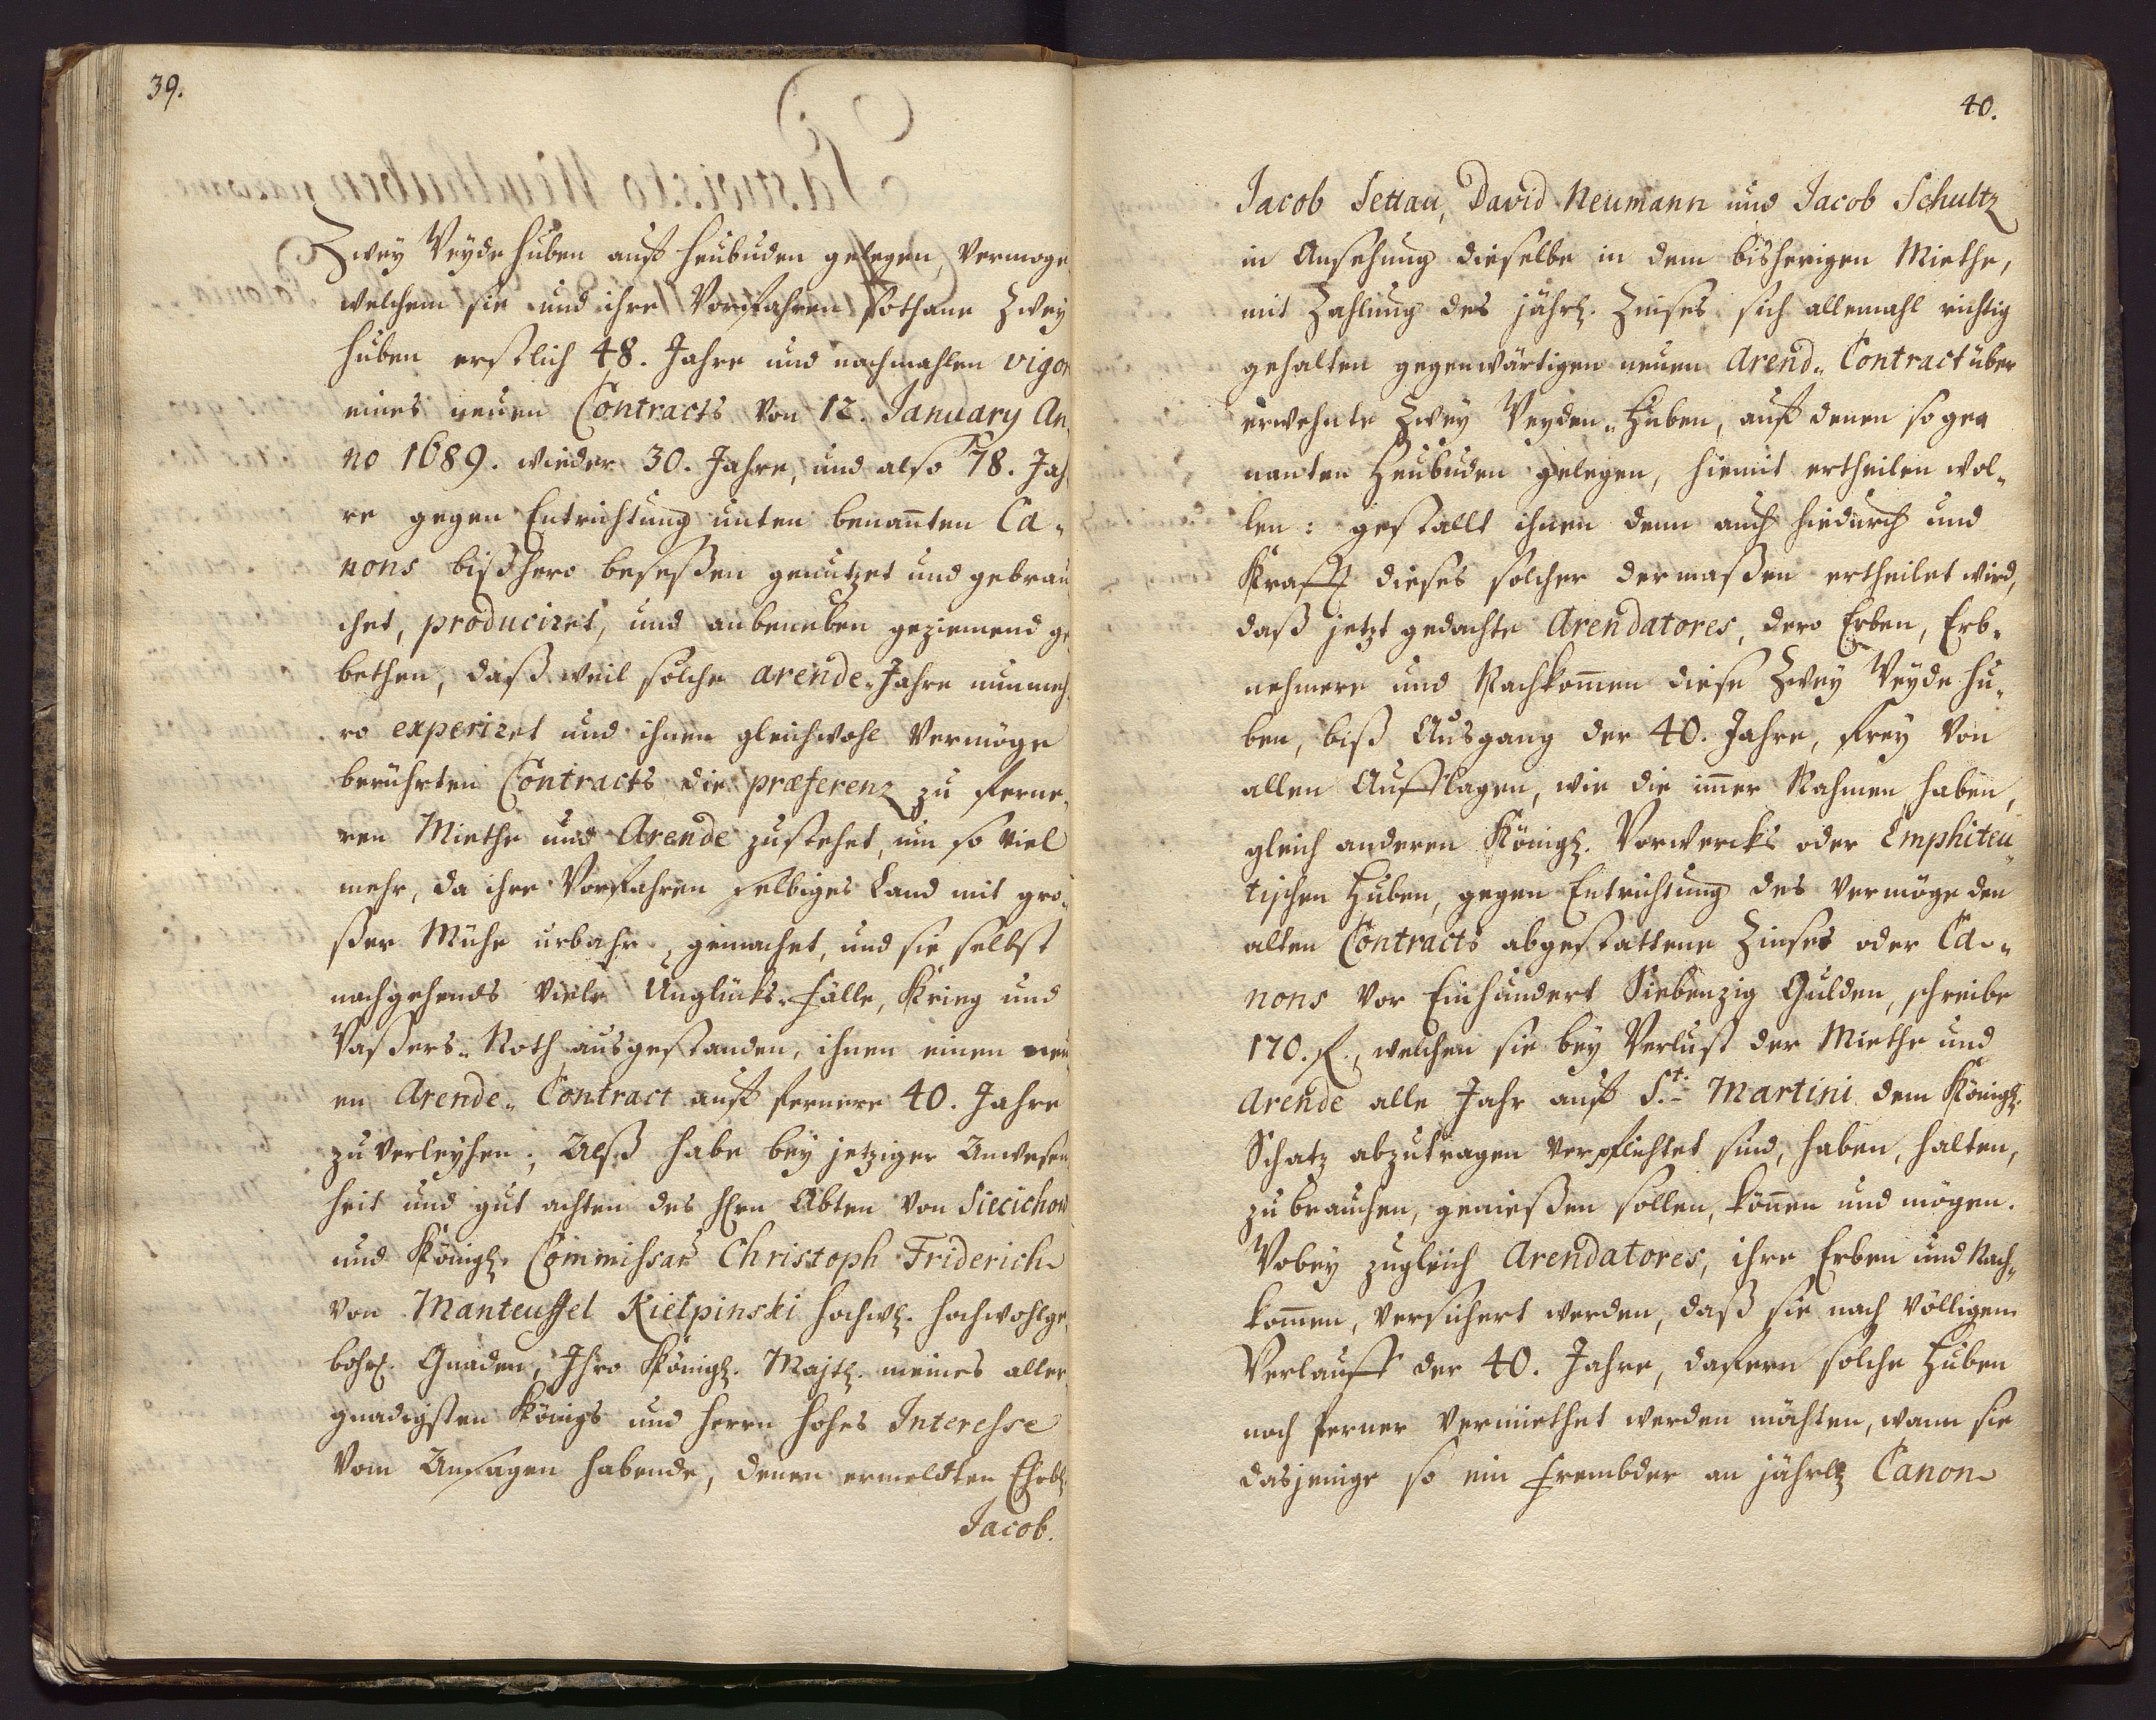 39.
Zwey Weydehuben auff Heubuden gelegen, vermoge
welchem sie und ihre Vorfahren sothane Zwey
Huben erstlich 48. Jahre und nachmahlen vigor
eines neuen Contracts von 12. January An„
no 1689. wieder 30. Jahre, und also 78. Jah„
re gegen Entrichtung unten benanten Ca„
nons bißhero beseßen genützet und gebrau
chet, produciret, und anbeneben geziemend ge
bethen, daß weil solche arende„Jahre nunmeh„
ro experiret und ihnen gleichwohl vermöge
berührten Contracts die præferenz zu ferne„
ren Miethe und Arende zustehet, um so viel
mehr, da ihre Vorfahren selbiges Land mit gro„
ßer Mühe urbahr gemachet, und sie selbst
nachgehends viele Unglücks„Fälle, Krieg und
Waßers„Noth ausgestanden, ihnen einen neu
en Arende„ Contract auff fernere 40. Jahre
zu verleyhen; Alß habe bey jetziger Anwesen
heit und gut achten des HErn Abten von Siecichow
und Königl. Commissar Christoph Friderich
von Manteuffel Kielpinski Hochw. Hochwohlge„
bohr. Gnaden, Ihro Königl. Majtl. meines aller„
gnädigsten Königs und Herrn hohes Interesse
vom Augen habende, denen ermeldten Ehrb.
Jacob.
40.
Jacob Settau, David Neumann und Jacob Schultz
in Ansehung dieselbe in dem bisherigen Miethe,
mit Zahlung des jährl. Zinses sich allemahl richtig
gehalten gegenwärtigen neuen Arend„ Contract über
erwehnte Zwey Weyden„Huben, auff denen so gen
nanten Heubuden gelegen, hiemit ertheilen wol„
len: gestallt ihnen denn auch hiedurch und
Krafft dieses solcher dermaßen ertheilet wird,
daß jetzt gedachte Arendatores, dero Erben, Erb„
nehmere und Nachkomen diese Zwey Weyde Hu„
ben, biß Ausgang der 40. Jahre, frey von
allen Aufflagen, wie die imer Nahmen haben,
gleich anderen Königl. Vorwercks oder Emphiteu„
tischen Huben, gegen Entrichtung des vermöge den
alten Contracts abgestattene Zinses oder Ca„
nons vor Einhundert Siebenzig Gulden, schreibe
170. f., welchen sie bey Verlust der Miethe und
Arende alle Jahr auff St. Martini dem Königl.
Schatz abzutragen verpflichtet sind, haben, halten,
zu brauchen, genießen sollen, könen und mögen.
Wobey zugleich Arendatores, ihre Erben und Nach„
komen, versichert werden, daß sie nach völligem
Verlauff der 40. Jahre, dafern solche Huben
noch ferner vermiethet werden möchten, wann sie
dasjenige so ein Frembder an jährl. Canon